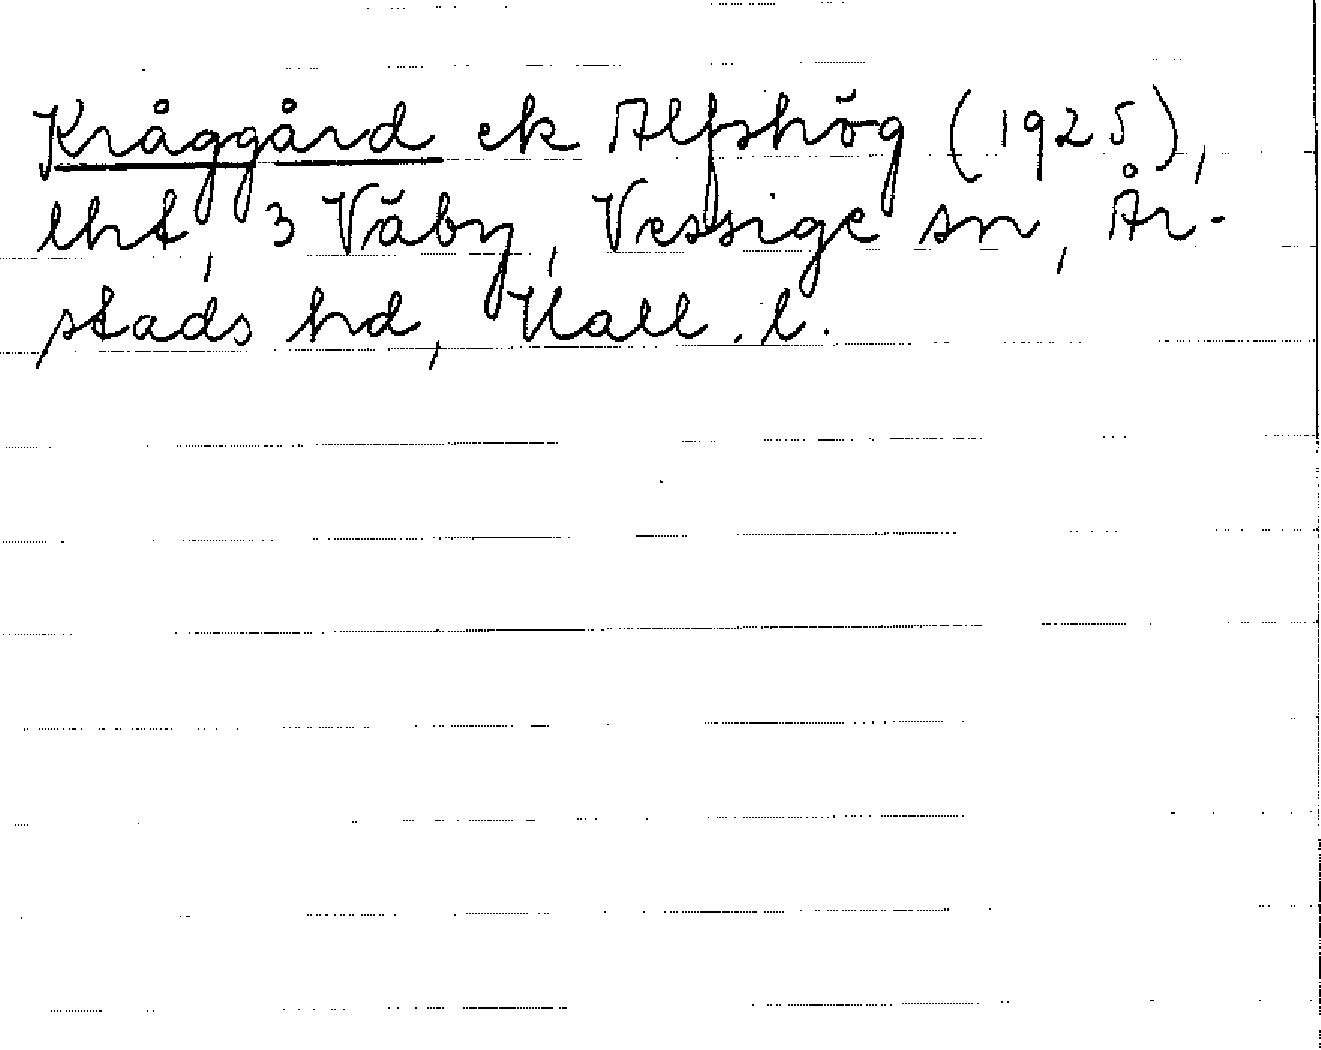 Kråggård ek Alfshög (1925),
lht, 3 Väby, Vessige sn, År-
stads hd, Hall. l.